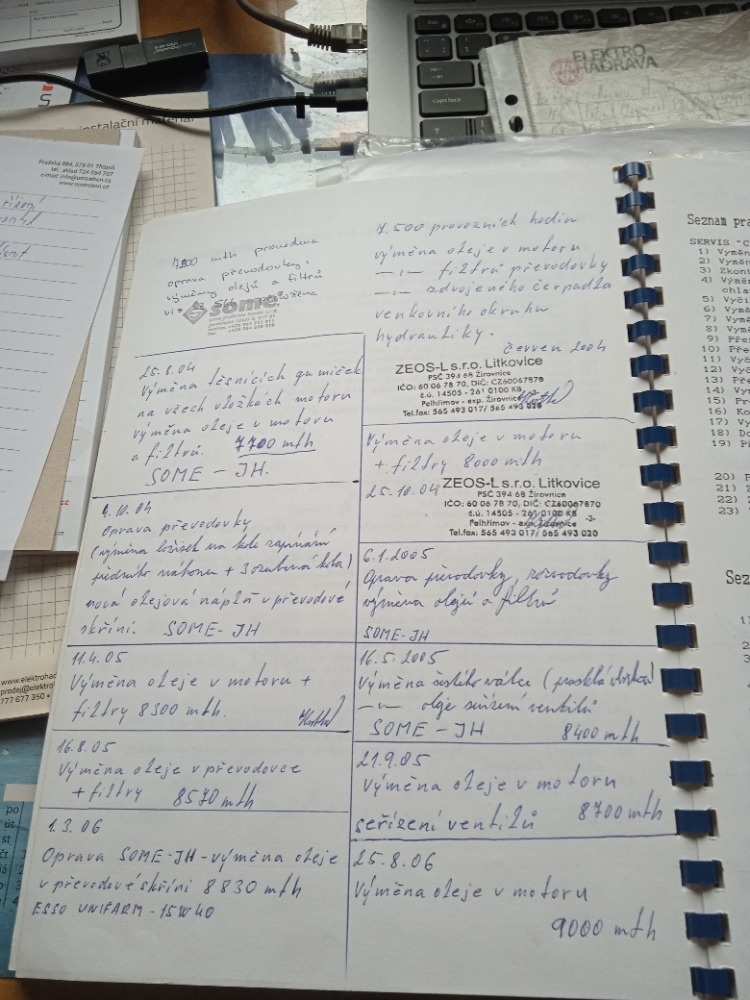 instalační materiál
Pražská 884, 379 01 Třeboň
tel. sklad 724 054 707
www.elektrohad
prodej@elektro
777 677 350
caps lock
ELEKTRO
HADRAVA
7200 mth provedena
oprava převodovky,
výměny olejů a filtrů
some
25.8.04
Výměna těsnících gumiček
na všech vložkách motoru
výměna oleje v motoru
a filtrů. 7700 mth
SOME - JH.
4.10.04
Oprava převodovky
(výměna ložisek na kole zapínání
předního náhonu + 3 ozubená kola)
nová olejová náplň v převodové
skříni. SOME-JH
11.4.05
Výměna oleje v motoru +
filtry 8300 mth.
16.8.05
Výměna oleje v převodovce
+ filtry 8570 mth
1.3.06
Oprava SOME-JH - výměna oleje
v převodové skříni 8830 mth
ESSO UNIFARM - 15W40
7.500 provozních hodin
výměna oleje v motoru
—"— filtrů převodovky
—"— zdvojeného čerpadla
venkovního okruhu
hydrauliky.
červen 2004
ZEOS-L s.r.o. Litkovice
PSČ 394 68 Žirovnice
IČO: 60 06 78 70, DIČ: CZ60067870
č.ú. 14505 - 261 0100 KB
Pelhřimov - exp. Žirovnice
Tel.fax: 565 493 017/ 565 493 020
Výměna oleje v motoru
+ filtry 8000 mth
25.10.04
ZEOS-L s.r.o. Litkovice
PSČ 394 68 Žirovnice
IČO: 60 06 78 70, DIČ: CZ60067870
č.ú. 14505 - 261 0100 KB
Pelhřimov - exp. Žirovnice -3-
Tel.fax: 565 493 017/ 565 493 020
6.1.2005
Oprava převodovky, rozvodovky
výměna olejů a filtrů
SOME-JH
16.5.2005
Výměna šestého válce (prasklá vložka)
—"— oleje seřízení ventilů
SOME - JH 8400 mth
21.9.05
Výměna oleje v motoru
seřízení ventilů 8700 mth
25.8.06
Výměna oleje v motoru
9000 mth
Seznam pra
SERVIS "C
1) Vyměn
2) Výměn
3) Zkont
4) Výměn
chla
5) Vyčí
6) Vymě
7) Vymě
8) Vymě
9) Přes
10) Přez
11) Vyč
12) Vyč
13) Pře
14) Vym
15) Pro
16) Kon
17) Vy
18) Do
19) Př
20) P
21) Z
22)
23)
Sez
1)
2)
3